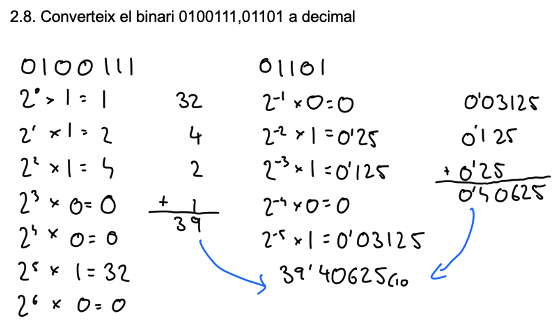 2.8. Converteix el binari 0100111,01101 a decimal
0100111
2⁰ × 1 = 1
2¹ × 1 = 2
2² × 1 = 4
2³ × 0 = 0
2⁴ × 0 = 0
2⁵ × 1 = 32
2⁶ × 0 = 0
32
4
2
+ 1
39
01101
2⁻¹ × 0 = 0
2⁻² × 1 = 0'25
2⁻³ × 1 = 0'125
2⁻⁴ × 0 = 0
2⁻⁵ × 1 = 0'03125
0'03125
0'125
+ 0'25
0'40625
39'40625(10